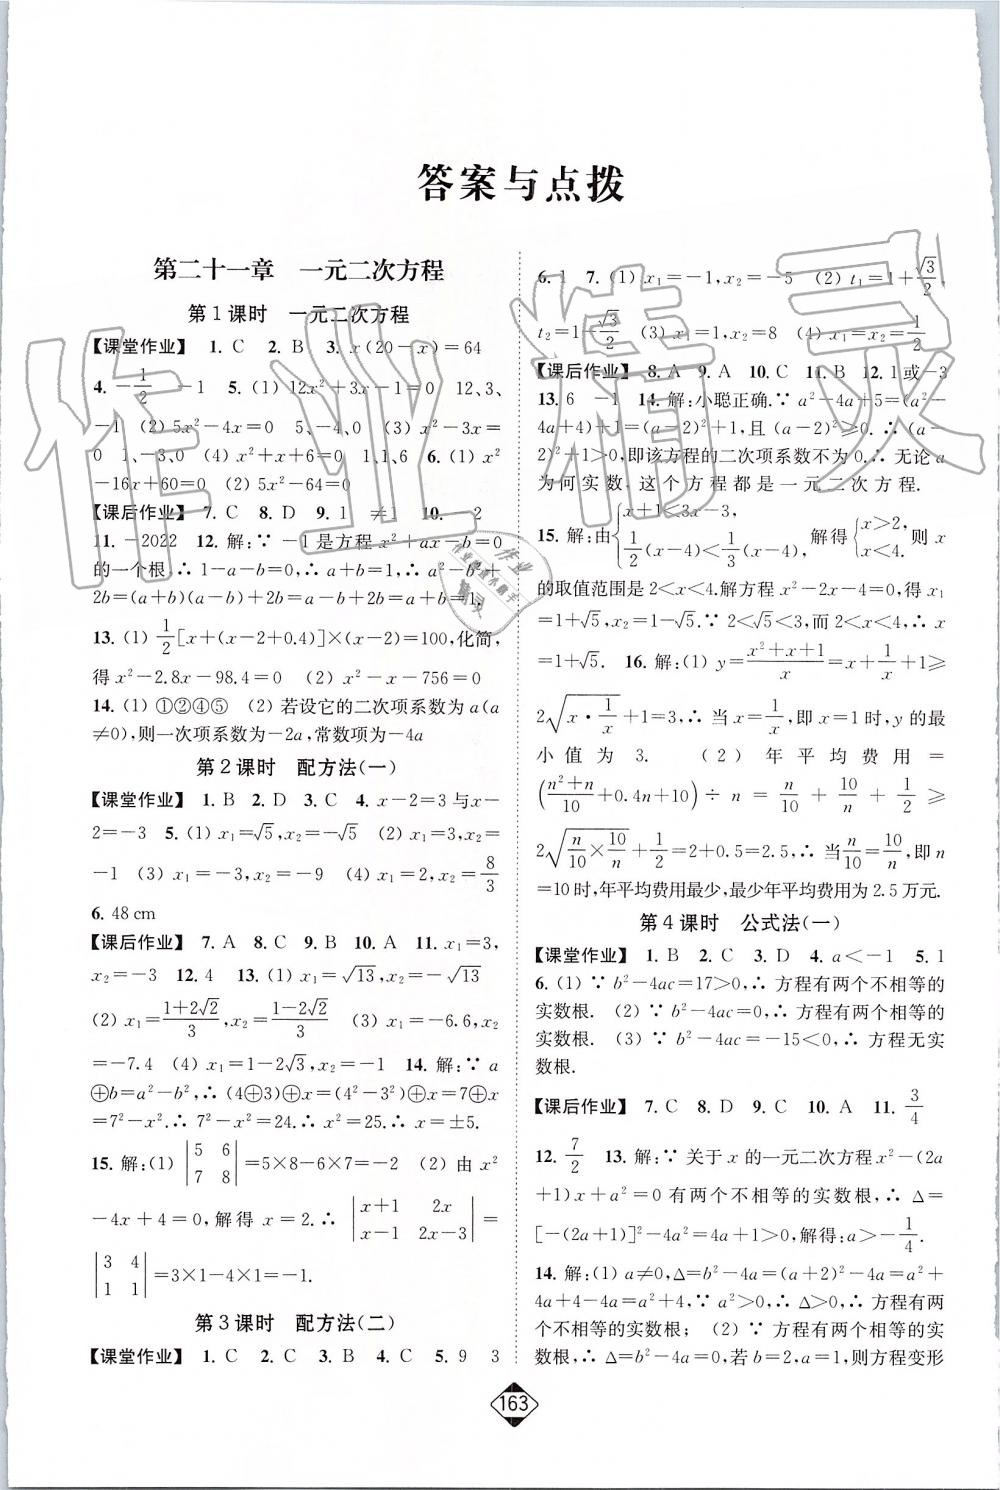 答案与点拨
第二十一章　一元二次方程
第1课时　一元二次方程
【课堂作业】 1. C 2. B 3. x(20－x)＝64
4. －1/2　－1 5. (1) 12x²＋3x－1＝0　12、3、
－1 (2) 5x²－4x＝0　5、－4、0 (3) x²－3x＝
0　1、－3、0 (4) x²＋x＋6＝0　1、1、6 6. (1) x²
－16x＋60＝0 (2) 5x²－64＝0
【课后作业】 7. C 8. D 9. 1　≠1 10. －2
11. －2022 12. 解：∵ －1是方程x²＋ax－b＝0
的一个根,∴ 1－a－b＝0,∴ a＋b＝1,∴ a²－b²＋
2b＝(a＋b)(a－b)＋2b＝a－b＋2b＝a＋b＝1.
13. (1) 1/2[x＋(x－2＋0.4)]×(x－2)＝100,化简,
得x²－2.8x－98.4＝0 (2) x²－x－756＝0
14. (1) ①②④⑤ (2) 若设它的二次项系数为a(a
≠0),则一次项系数为－2a,常数项为－4a
第2课时　配方法(一)
【课堂作业】 1. B 2. D 3. C 4. x－2＝3与x－
2＝－3 5. (1) x₁＝√5,x₂＝－√5 (2) x₁＝3,x₂＝
－1 (3) x₁＝－3,x₂＝－9 (4) x₁＝4,x₂＝8/3
6. 48 cm
【课后作业】 7. A 8. C 9. B 10. A 11. x₁＝3,
x₂＝－3 12. 4 13. (1) x₁＝√13,x₂＝－√13
(2) x₁＝(1＋2√2)/3,x₂＝(1－2√2)/3 (3) x₁＝－6.6,x₂
＝－7.4 (4) x₁＝1－2√3,x₂＝－1 14. 解：∵ a
⊕b＝a²－b²,∴ (4⊕3)⊕x＝(4²－3²)⊕x＝7⊕x
＝7²－x².∴ 7²－x²＝24.∴ x²＝25.∴ x＝±5.
15. 解：(1) |5 6; 7 8|＝5×8－6×7＝－2 (2) 由 x²
－4x＋4＝0,解得 x＝2.∴ |x＋1 2x; x－1 2x－3|＝
|3 4; 1 1|＝3×1－4×1＝－1.
第3课时　配方法(二)
【课堂作业】 1. C 2. C 3. B 4. C 5. 9　3
6. 1 7. (1) x₁＝－1,x₂＝－5 (2) t₁＝1＋√3/2,
t₂＝1－√3/2 (3) x₁＝1,x₂＝8 (4) x₁＝x₂＝1/2
【课后作业】 8. A 9. A 10. C 11. B 12. 1或－3
13. 6　－1 14. 解：小聪正确.∵ a²－4a＋5＝(a²－
4a＋4)＋1＝(a－2)²＋1,且 (a－2)²≥0.∴ (a－
2)²＋1>0,即该方程的二次项系数不为0.∴ 无论a
为何实数,这个方程都是一元二次方程.
15. 解：由{x＋1<3x－3, 1/2(x－4)<1/3(x－4), 解得{x>2, x<4. 则 x
的取值范围是2<x<4.解方程x²－2x－4＝0,得x₁
＝1＋√5,x₂＝1－√5.∵ 2<√5<3,而2<x<4,∴ x
＝1＋√5. 16. 解：(1) y＝(x²＋x＋1)/x＝x＋1/x＋1≥
2√(x·1/x)＋1＝3,∴ 当 x＝1/x,即 x＝1 时,y 的最
小值为 3. (2) 年平均费用＝
((n²＋n)/10＋0.4n＋10)÷n＝n/10＋10/n＋1/2≥
2√(n/10×10/n)＋1/2＝2＋0.5＝2.5,∴ 当n/10＝10/n,即n
＝10时,年平均费用最少,最少年平均费用为2.5万元.
第4课时　公式法(一)
【课堂作业】 1. B 2. C 3. D 4. a<－1 5. 1
6. (1) ∵ b²－4ac＝17>0,∴ 方程有两个不相等的
实数根. (2) ∵ b²－4ac＝0,∴ 方程有两个相等的
实数根. (3) ∵ b²－4ac＝－15<0,∴ 方程无实
数根.
【课后作业】 7. C 8. D 9. C 10. A 11. 3/4
12. 7/2 13. 解：∵ 关于 x 的一元二次方程x²－(2a
＋1)x＋a²＝0 有两个不相等的实数根,∴ Δ＝
[－(2a＋1)]²－4a²＝4a＋1>0,解得：a>－1/4.
14. 解：(1) a≠0,Δ＝b²－4a＝(a＋2)²－4a＝a²＋
4a＋4－4a＝a²＋4,∵ a²>0,∴ Δ>0,∴ 方程有两
个不相等的实数根； (2) ∵ 方程有两个相等的实
数根,∴ Δ＝b²－4a＝0,若b＝2,a＝1,则方程变形
163
作业精灵